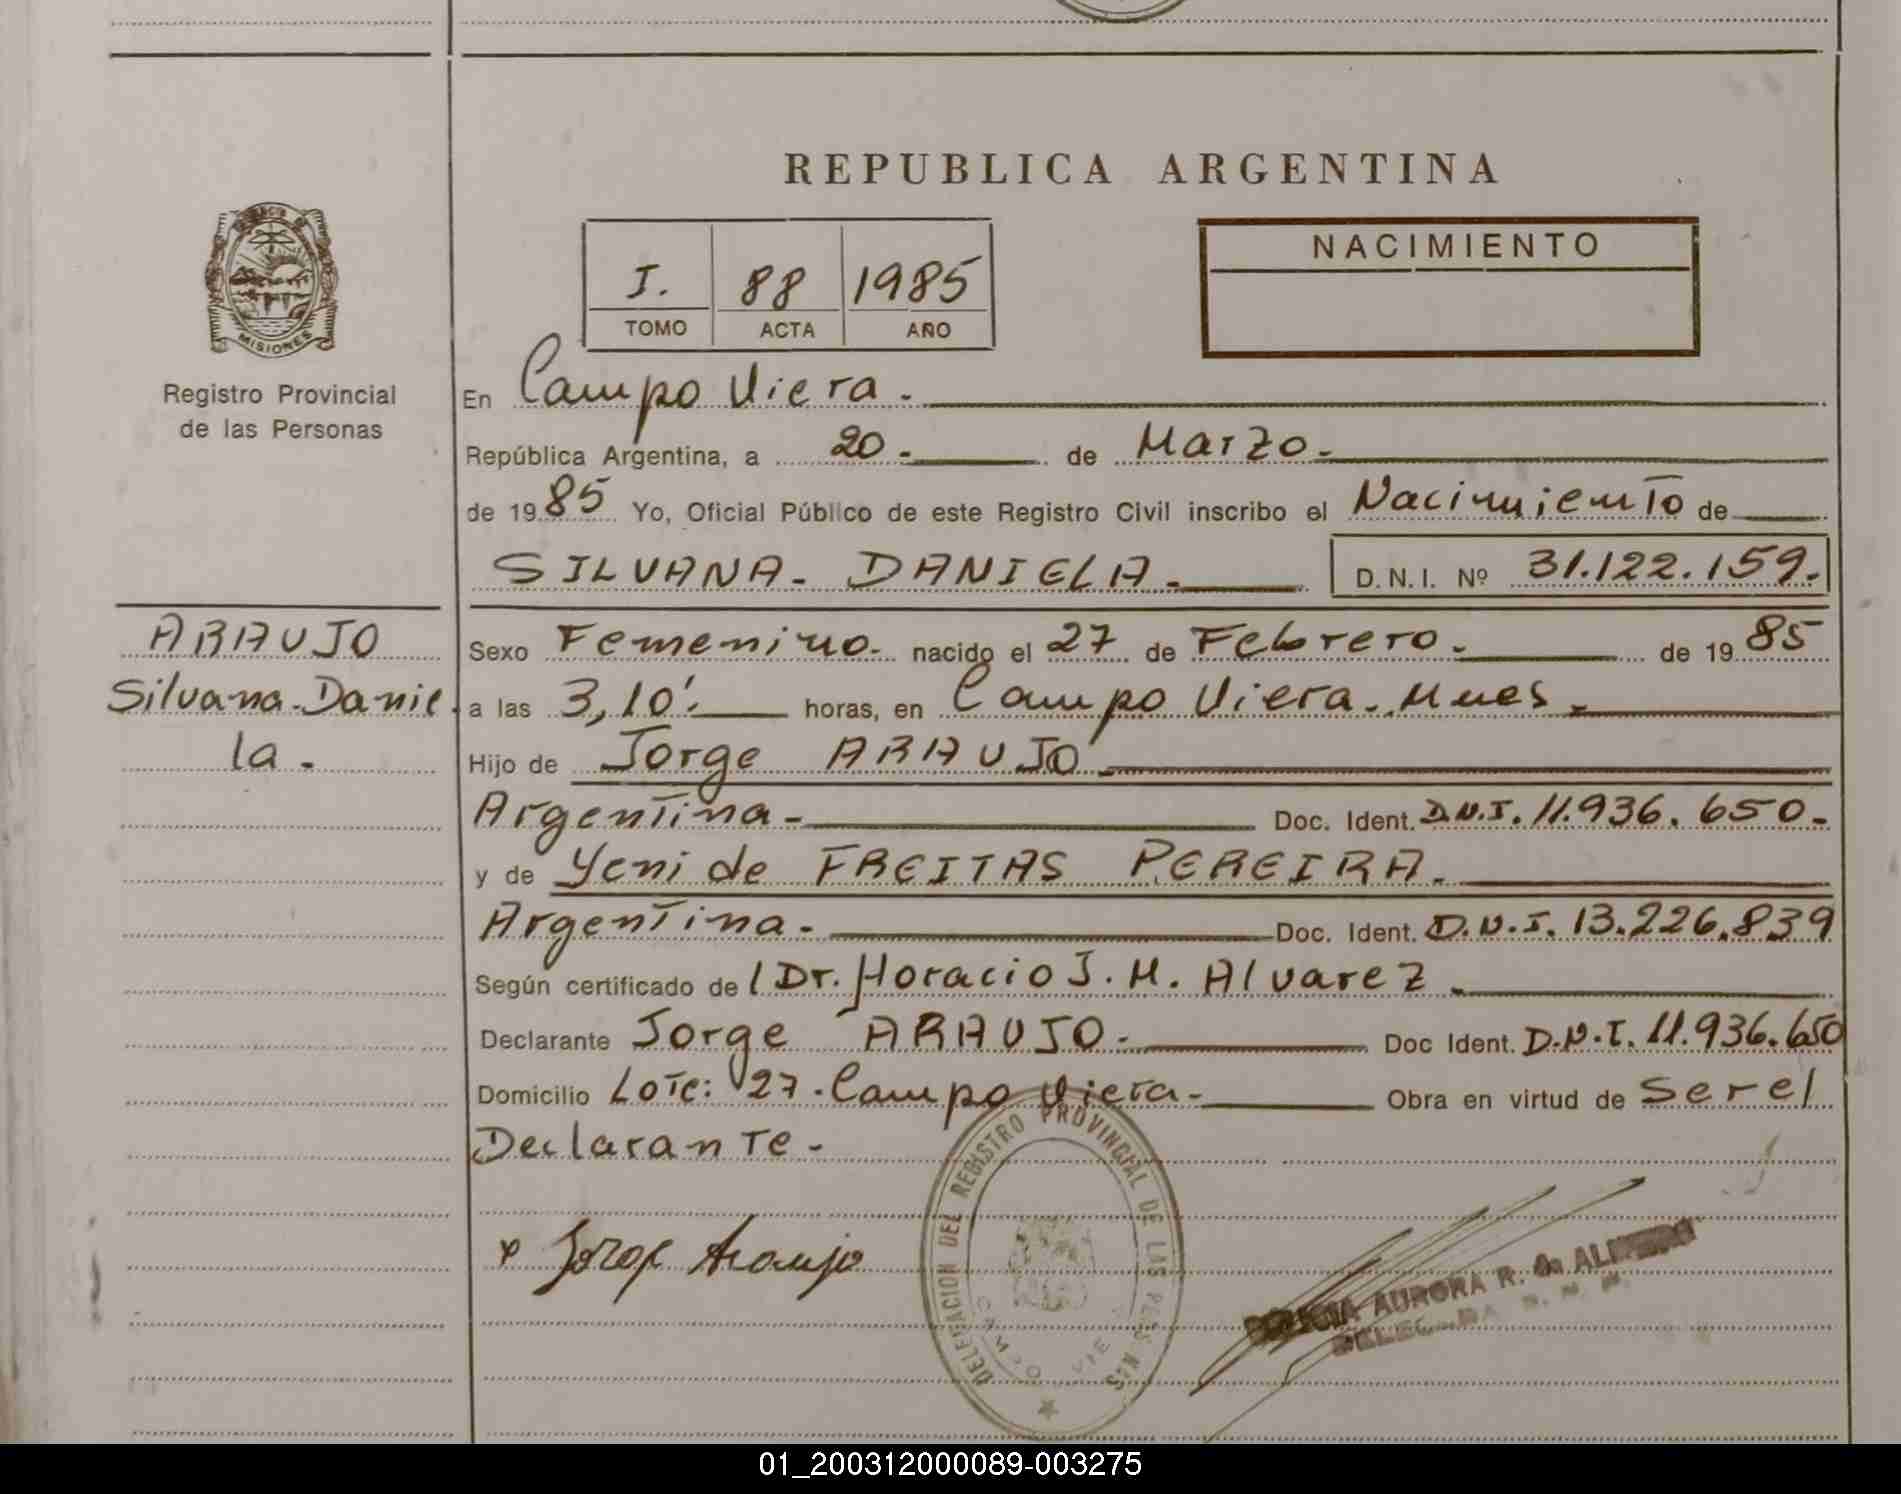 REPUBLICA ARGENTINA
I. 88 1985
TOMO ACTA AÑO
NACIMIENTO
MISIONES
Registro Provincial
de las Personas
En Campo Viera.
República Argentina, a 20. de Marzo.
de 19 85 Yo, Oficial Público de este Registro Civil inscribo el Nacimiento de
SILVANA. DANIELA. D.N.I. Nº 31.122.159.
ARAUJO
Silvana. Danie
la.
Sexo Femenino. nacido el 27 de Febrero. de 19 85
a las 3,10'. horas, en Campo Viera. Mnes.
Hijo de Jorge ARAUJO
Argentina. Doc. Ident. D.N.I. 11.936.650.
y de Yeni de FREITAS PEREIRA.
Argentina. Doc. Ident. D.N.I. 13.226.839
Según certificado del Dr. Horacio J. M. Alvarez.
Declarante Jorge ARAUJO. Doc Ident. D.N.I. 11.936.650
Domicilio Lote: 27. Campo Viera. Obra en virtud de Ser el
Declarante.
Jorge Araujo
DELEGACION DEL REGISTRO PROVINCIAL DE LAS PERS. MNS
CAMPO VIERA
AURORA R.
01_200312000089-003275